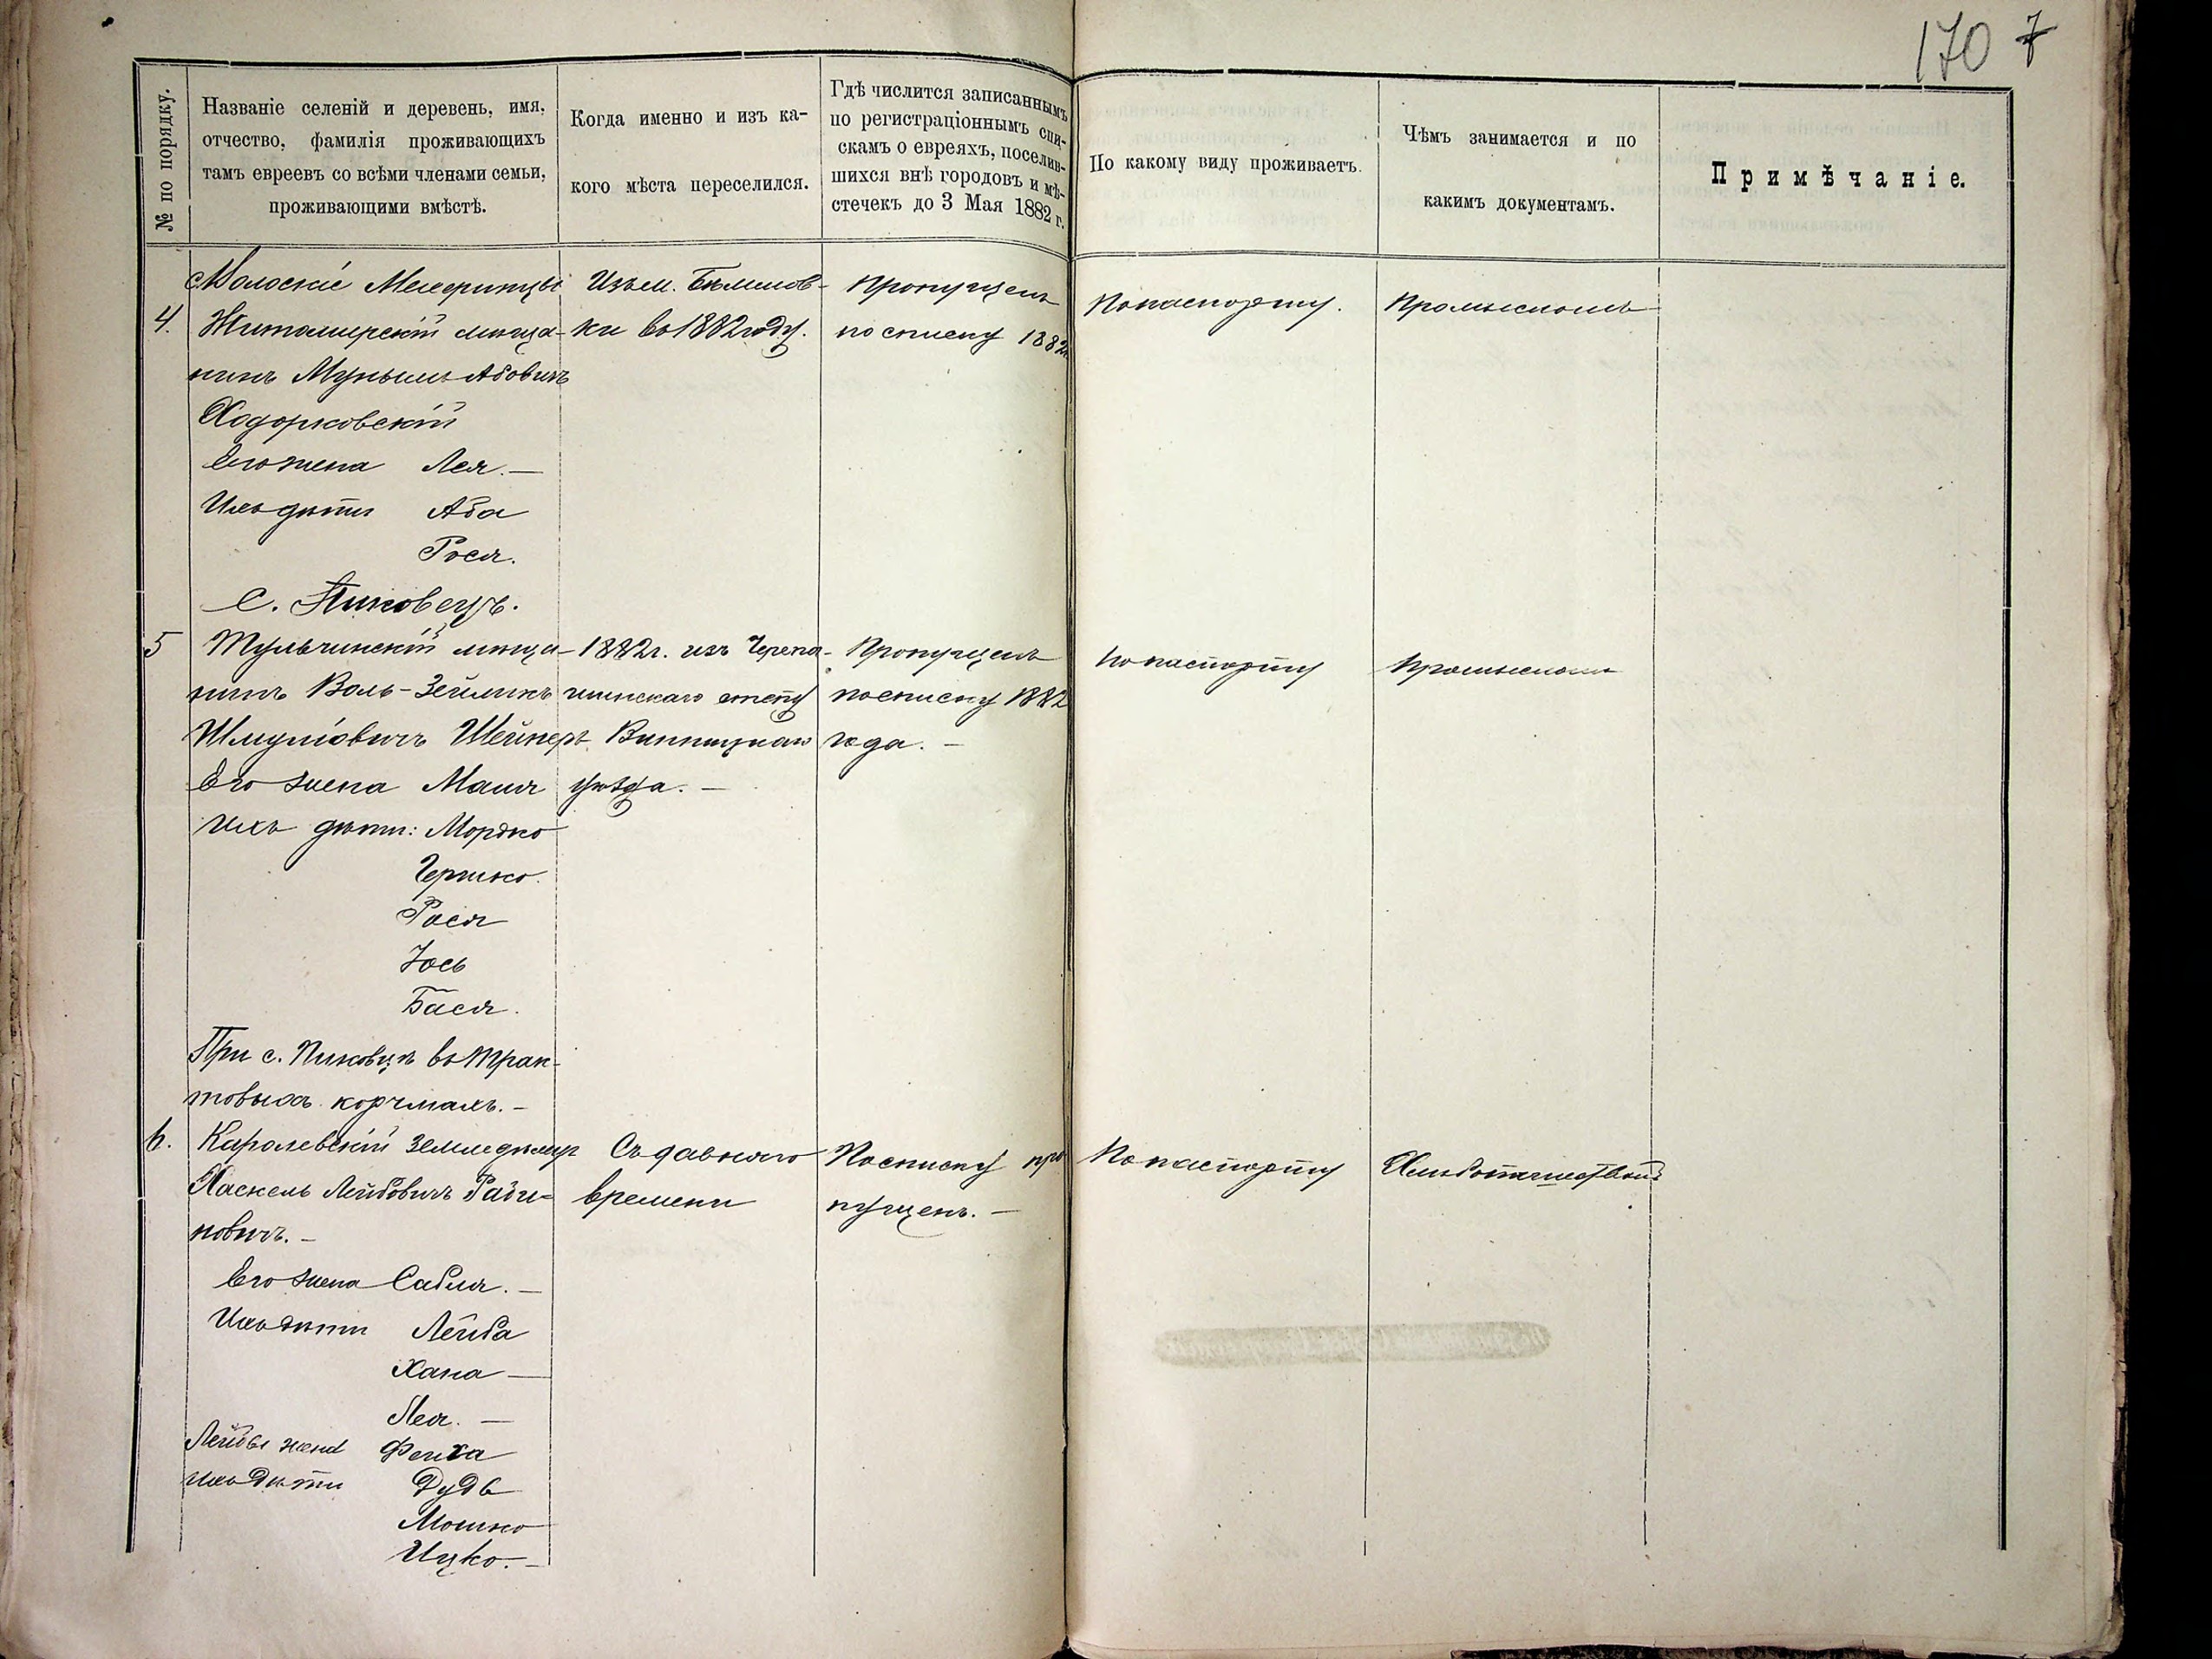 170 7
№ по порядку.
Названіе селеній и деревень, имя,
отчество, фамилія проживающихъ
тамъ евреевъ со всѣми членами семьи,
проживающими вмѣстѣ.
Когда именно и изъ ка-
кого мѣста переселился.
Гдѣ числится записаннымъ
по регистраціоннымъ спи-
скамъ о евреяхъ, поселив-
шихся внѣ городовъ и мѣ-
стечекъ до 3 Мая 1882 г.
По какому виду проживаетъ.
Чѣмъ занимается и по
какимъ документамъ.
Примѣчаніе.
с. Волоскіе
4. Житомирскій мѣща-
нинъ Абовичъ
Ходорковскій
Его жена Лея. —
Ихъ дѣти Аба
Рося.
Изъ м.
ки въ 1882 году.
Пропущенъ
по списку 1882
По паспорту.
Промысломъ
с. Пиковецъ.
5 Тульчинскій мѣща-
нинъ Воль-Зейликъ
Шмулiовичъ Шейнеръ
Его жена Маня
Ихъ дѣти: Мордко
Гершко.
Рося
Іось
Бася.
1882 г. изъ Черепа-
шинскаго
Винницкаго
уѣзда. —
Пропущенъ
по списку 1882
года. —
По паспорту
Промысломъ
При с. Пиковцѣ въ трак-
товыхъ корчмахъ. —
6. Каролевскій земледѣлецъ
Хаскель Лейбовичъ Раби-
новичъ. —
Его жена
Ихъ дѣти Лейба
Хана —
Лея. —
Лейбы жена Фейга
ихъ дѣти Дудь
Мошко
Ицко. —
Съ давняго
времени
По списку про
пущенъ. —
По паспорту
Хлѣбопашествомъ